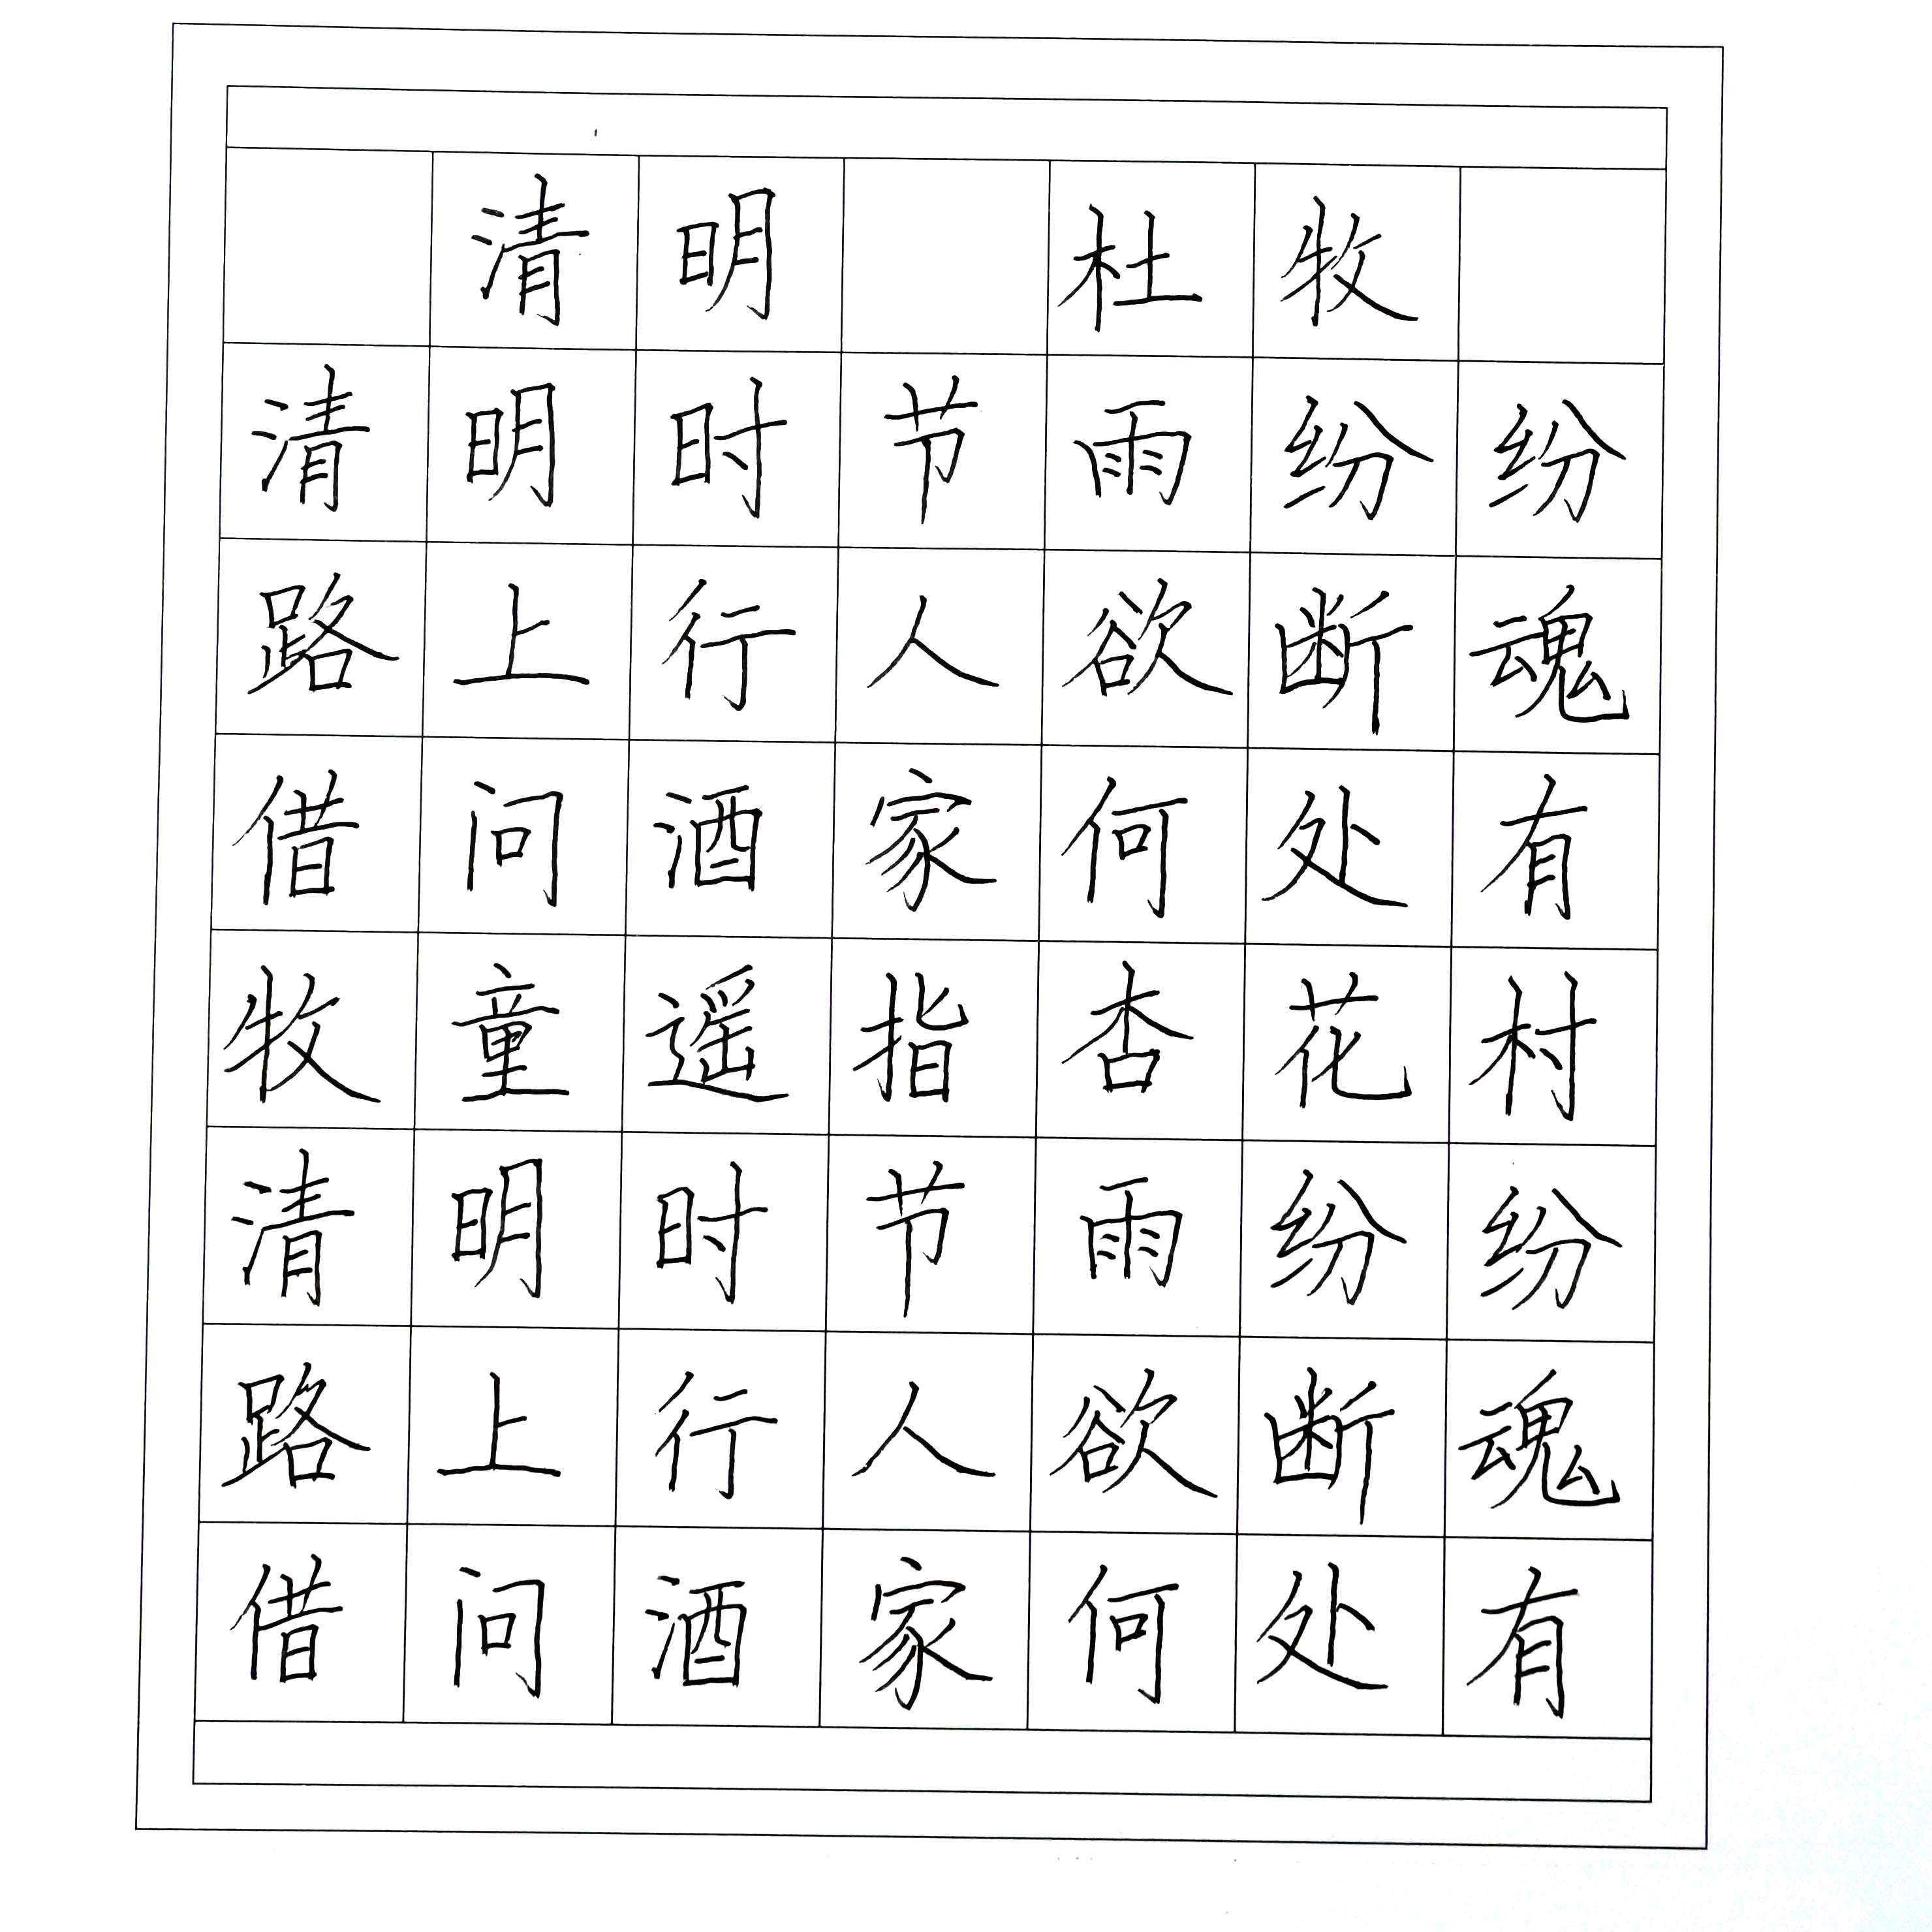 清明 杜牧
清明时节雨纷纷
路上行人欲断魂
借问酒家何处有
牧童遥指杏花村
清明时节雨纷纷
路上行人欲断魂
借问酒家何处有